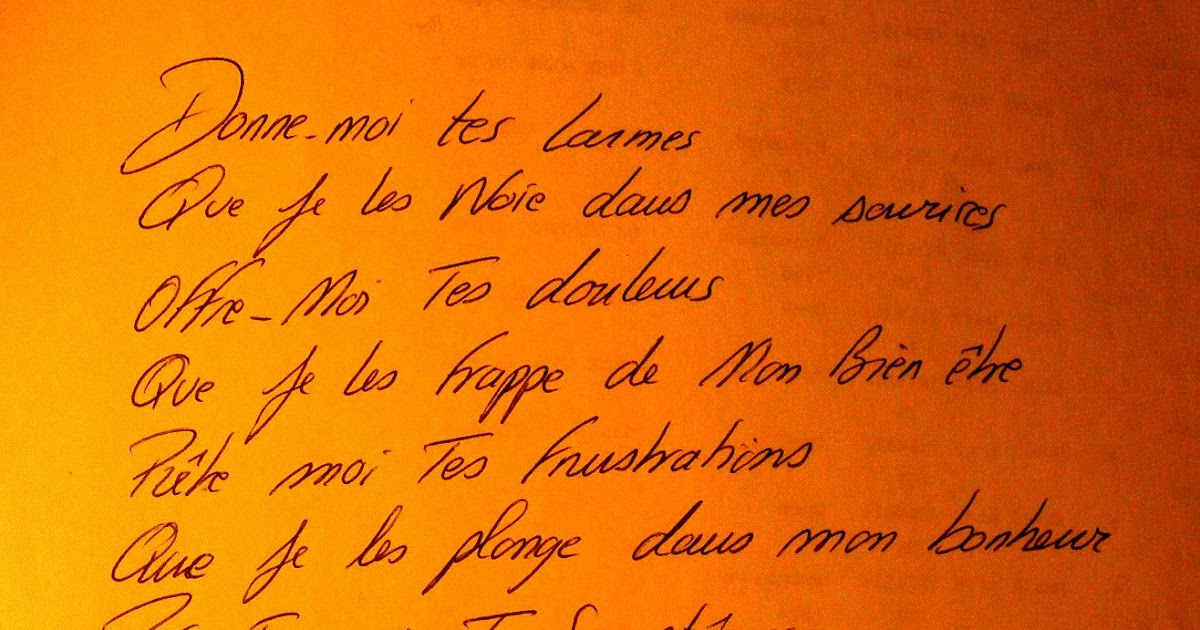 Donne-moi tes larmes
Que je les Noie dans mes sourires
Offre-Moi Tes douleurs
Que je les frappe de Mon Bien être
Prête moi Tes frustrations
Que je les plonge dans mon bonheur